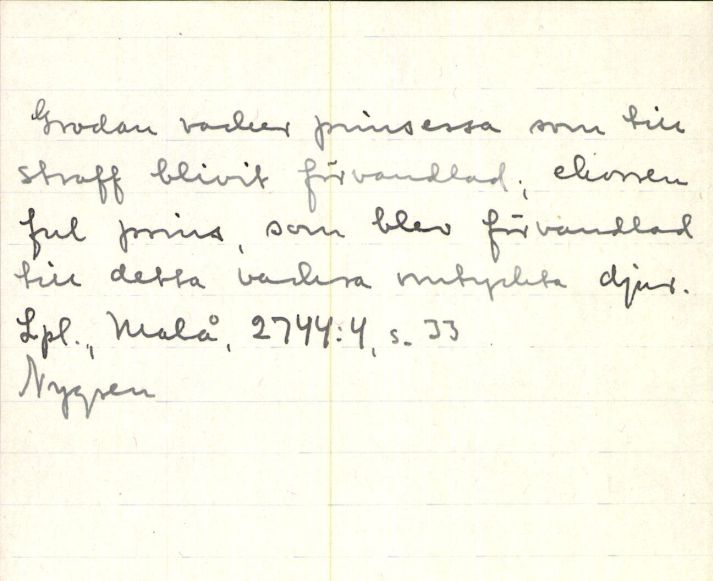 Grodan vacker prinsessa som till
straff blivit förvandlad; ekorren
ful prins, som blev förvandlad
till detta vackra omtyckta djur.
Lpl., Malå, 2744:4, s. 33
Nygren